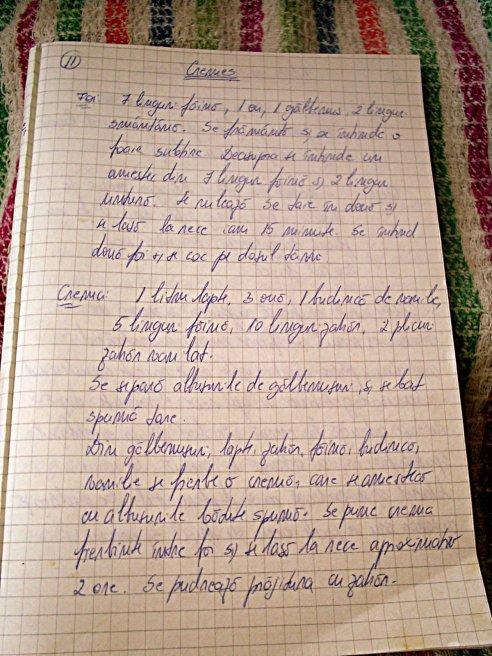 11
Cremeș
Foi: 7 linguri făină, 1 ou, 1 gălbenuș, 2 linguri
smântână. Se frământă și se întinde o
foaie subțire. Deasupra se întinde un
amestec din 7 linguri făină și 2 linguri
untură. Se rulează se taie în două și
se lasă la rece iam 15 minute. Se întind
două foi și se coc pe dosul tăvii.
Crema: 1 litru lapte, 3 ouă, 1 budincă de vanilie,
5 linguri făină, 10 linguri zahăr, 2 plicuri
zahăr vanilat.
Se separă albușurile de gălbenușuri, și se bat
spumă tare.
Din gălbenușuri, lapte, zahăr, făină, budincă,
vanilie se fierbe o cremă, care se amestecă
cu albușurile bătute spumă. Se pune crema
fierbinte între foi și se lasă la rece aproximativ
2 ore. Se pudrează prăjitura cu zahăr.